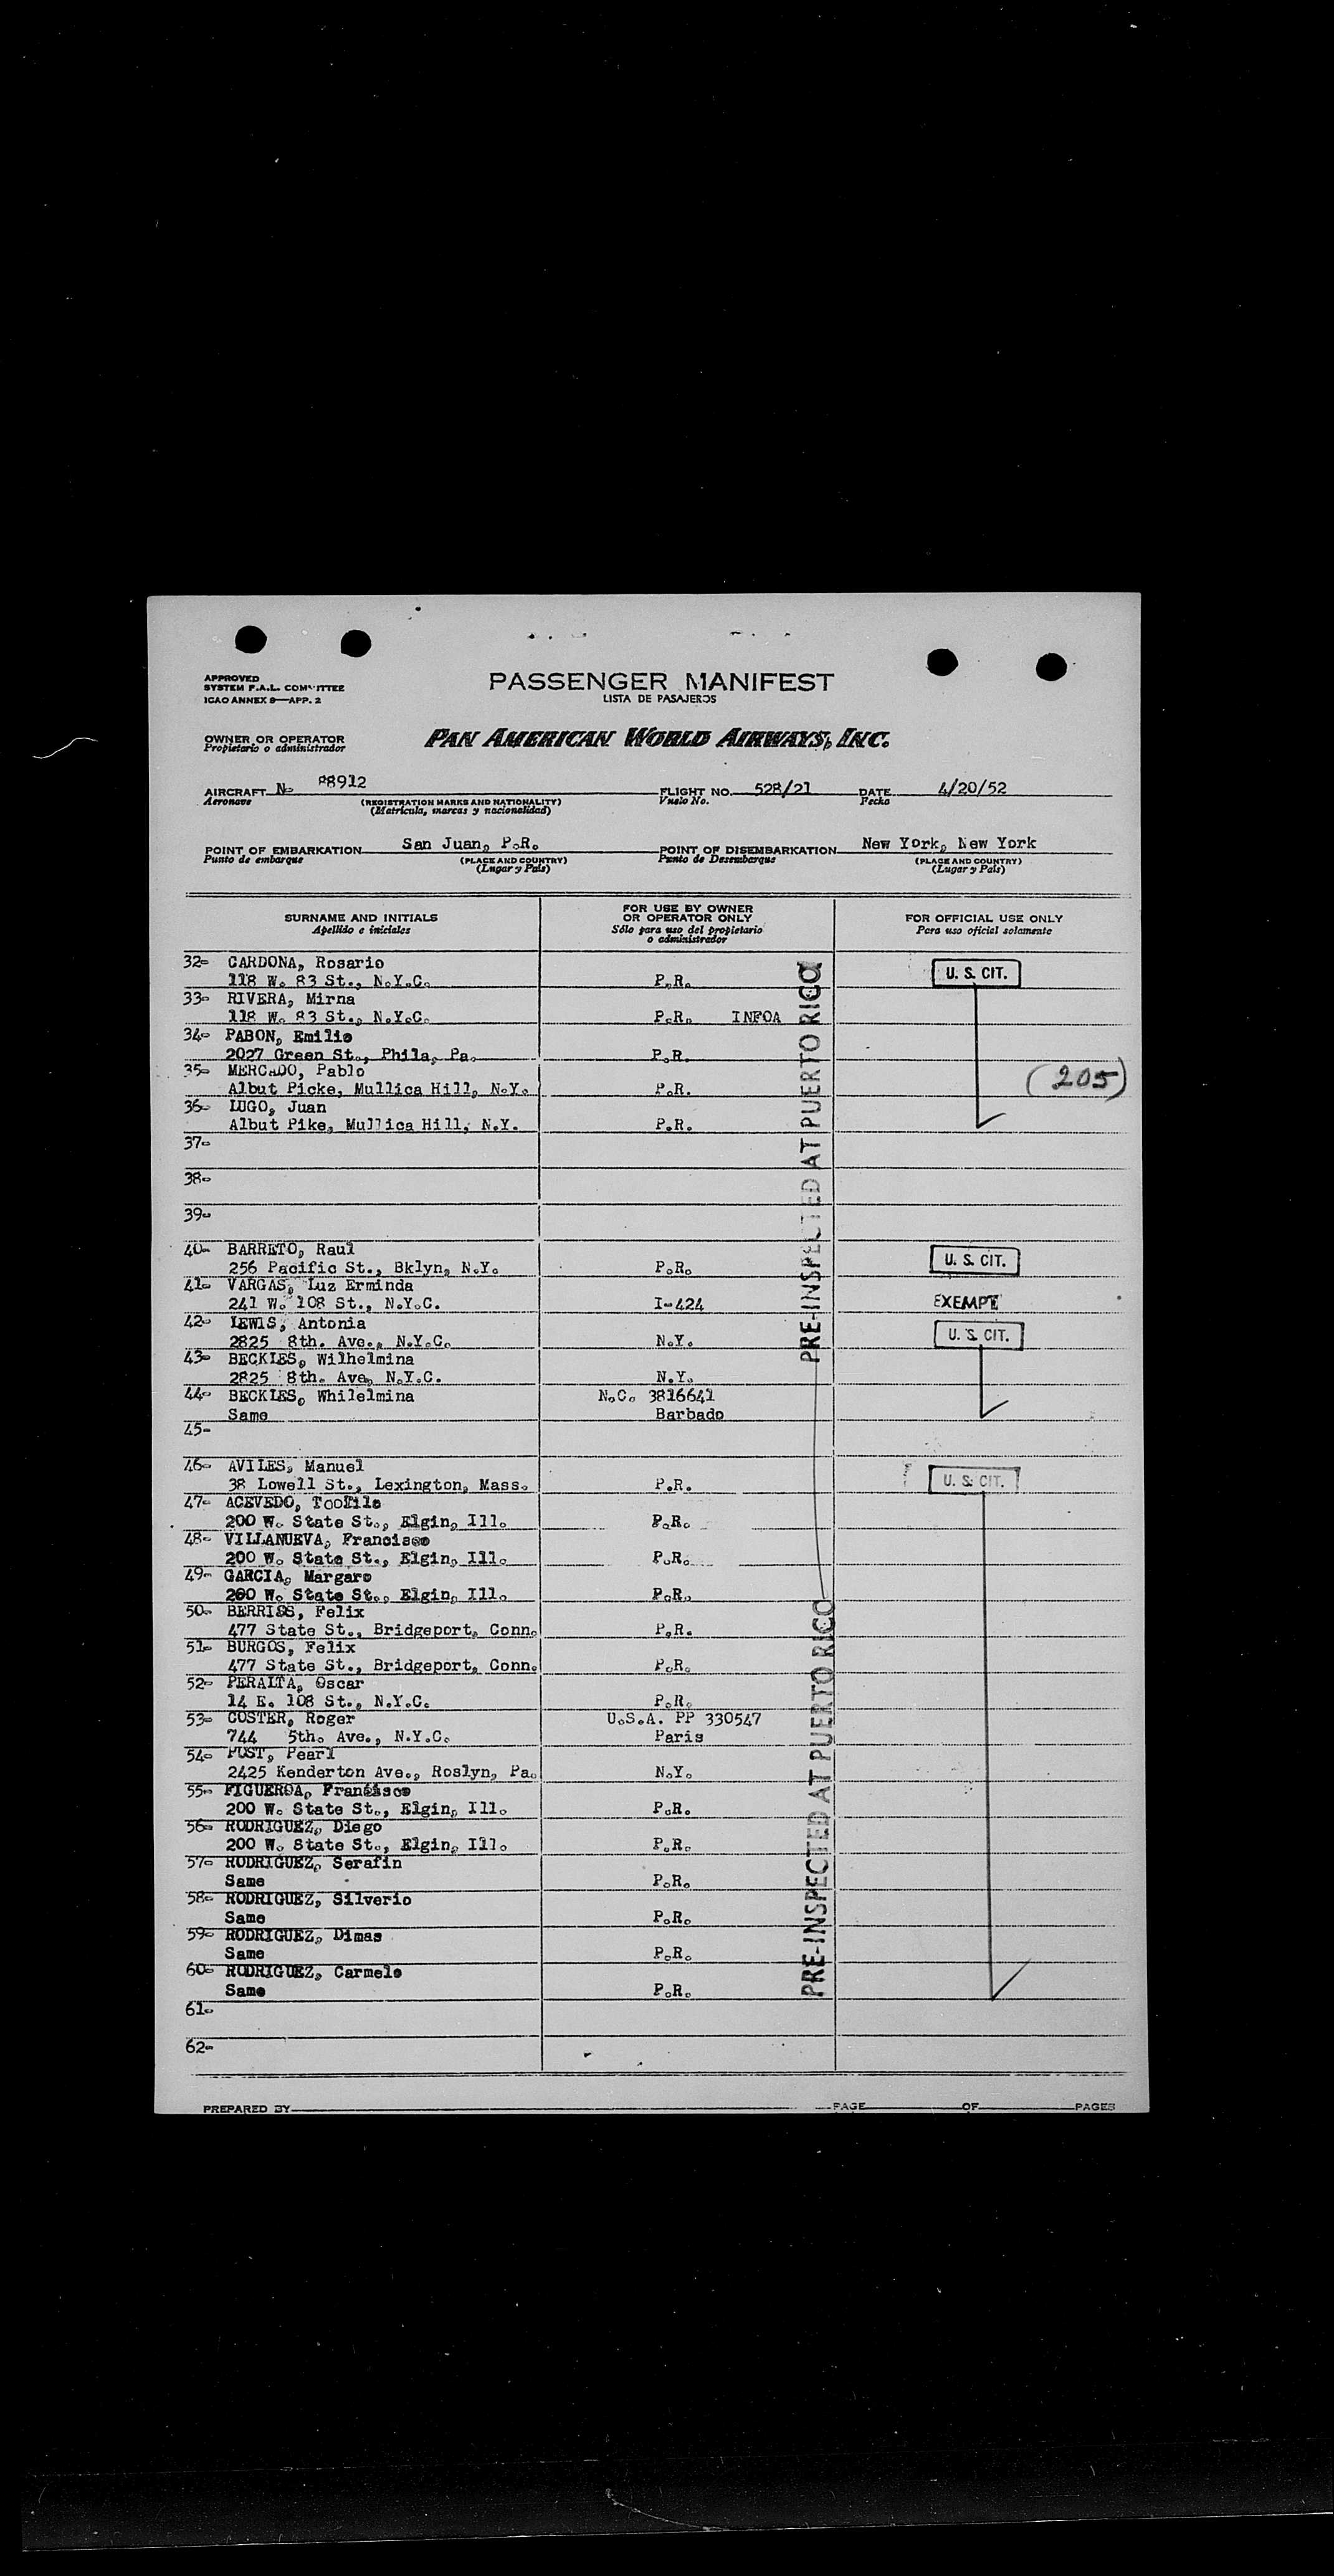 APPROVED
SYSTEM F.A.L. COMMITTEE
ICAO ANNEX 9—APP. 2
PASSENGER MANIFEST
LISTA DE PASAJEROS
OWNER OR OPERATOR
Propietario o administrador
PAN AMERICAN WORLD AIRWAYS, INC.
AIRCRAFT No 88912 FLIGHT NO. 528/21 DATE 4/20/52
Aeronave (REGISTRATION MARKS AND NATIONALITY) Vuelo No. Fecha
(Matrícula, marcas y nacionalidad)
POINT OF EMBARKATION San Juan, P.R. POINT OF DISEMBARKATION New York, New York
Punto de embarque (PLACE AND COUNTRY) Punto de Desembarque (PLACE AND COUNTRY)
(Lugar y País) (Lugar y País)
SURNAME AND INITIALS
Apellido e iniciales
FOR USE BY OWNER
OR OPERATOR ONLY
Sólo para uso del propietario
o administrador
FOR OFFICIAL USE ONLY
Para uso oficial solamente
32- CARDONA, Rosario U. S. CIT.
118 W. 83 St., N.Y.C. P.R.
33- RIVERA, Mirna
118 W. 83 St., N.Y.C. P.R. INFOA
34- PABON, Emilio
2027 Green St., Phila, Pa. P.R.
35- MERCADO, Pablo (205)
Albut Picke, Mullica Hill, N.Y. P.R.
36- LUGO, Juan
Albut Pike, Mullica Hill, N.Y. P.R.
37-
38-
39-
40- BARRETO, Raul U. S. CIT.
256 Pacific St., Bklyn, N.Y. P.R.
41- VARGAS, Luz Erminda
241 W. 108 St., N.Y.C. I-424 EXEMPT
42- LEWIS, Antonia U. S. CIT.
2825 8th. Ave., N.Y.C. N.Y.
43- BECKLES, Wilhelmina
2825 8th. Ave, N.Y.C. N.Y.
44- BECKLES, Whilelmina N.C. 3816641
Same Barbado
45-
46- AVILES, Manuel U. S. CIT.
38 Lowell St., Lexington, Mass. P.R.
47- ACEVEDO, Toofilo
200 W. State St., Elgin, Ill. P.R.
48- VILLANUEVA, Francisco
200 W. State St., Elgin, Ill. P.R.
49- GARCIA, Margaro
200 W. State St., Elgin, Ill. P.R.
50- BERRISS, Felix
477 State St., Bridgeport, Conn. P.R.
51- BURGOS, Felix
477 State St., Bridgeport, Conn. P.R.
52- PERALTA, Oscar
14 E. 108 St., N.Y.C. P.R.
53- COSTER, Roger U.S.A. PP 330547
744 5th. Ave., N.Y.C. Paris
54- POST, Pearl
2425 Kenderton Ave., Roslyn, Pa. N.Y.
55- FIGUEROA, Francisco
200 W. State St., Elgin, Ill. P.R.
56- RODRIGUEZ, Diego
200 W. State St., Elgin, Ill. P.R.
57- RODRIGUEZ, Serafin
Same P.R.
58- RODRIGUEZ, Silverio
Same P.R.
59- RODRIGUEZ, Dimas
Same P.R.
60- RODRIGUEZ, Carmelo
Same P.R.
61-
62-
PRE-INSPECTED AT PUERTO RICO
PRE-INSPECTED AT PUERTO RICO
PREPARED BY PAGE OF PAGES